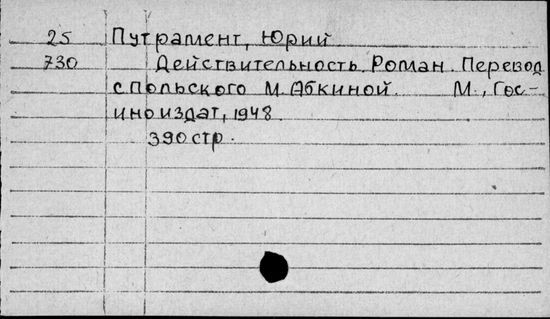 25 Путрамент, Юрий
730 Действительность. Роман. Перевод
с польского М. Абкиной. М., Гос-
иноиздат, 1948.
390 стр.